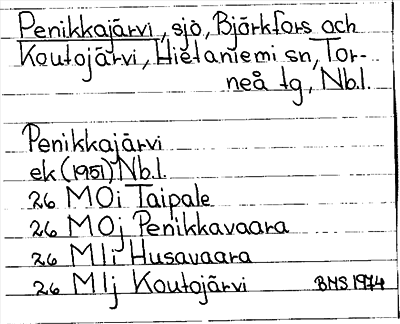 Penikkajärvi, sjö, Björkfors och
Koutojärvi, Hietaniemi sn, Tor-
neå tg, Nb.l.
Penikkajärvi
ek (1951) Nb.l.
26 M0i Taipale
26 M0j Penikkavaara
26 M1i Husavaara
26 M1j Koutojärvi BHS 1974